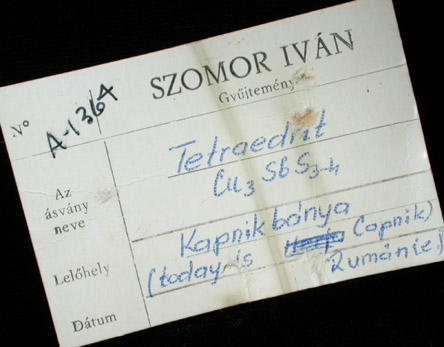 SZOMOR IVÁN
Gyűjtemény
No A-1364
Az ásvány neve
Tetraedrit
Cu3 Sb S3-4
Lelőhely
Kapnikbánya
(today is Capnik)
Rumänie.)
Dátum